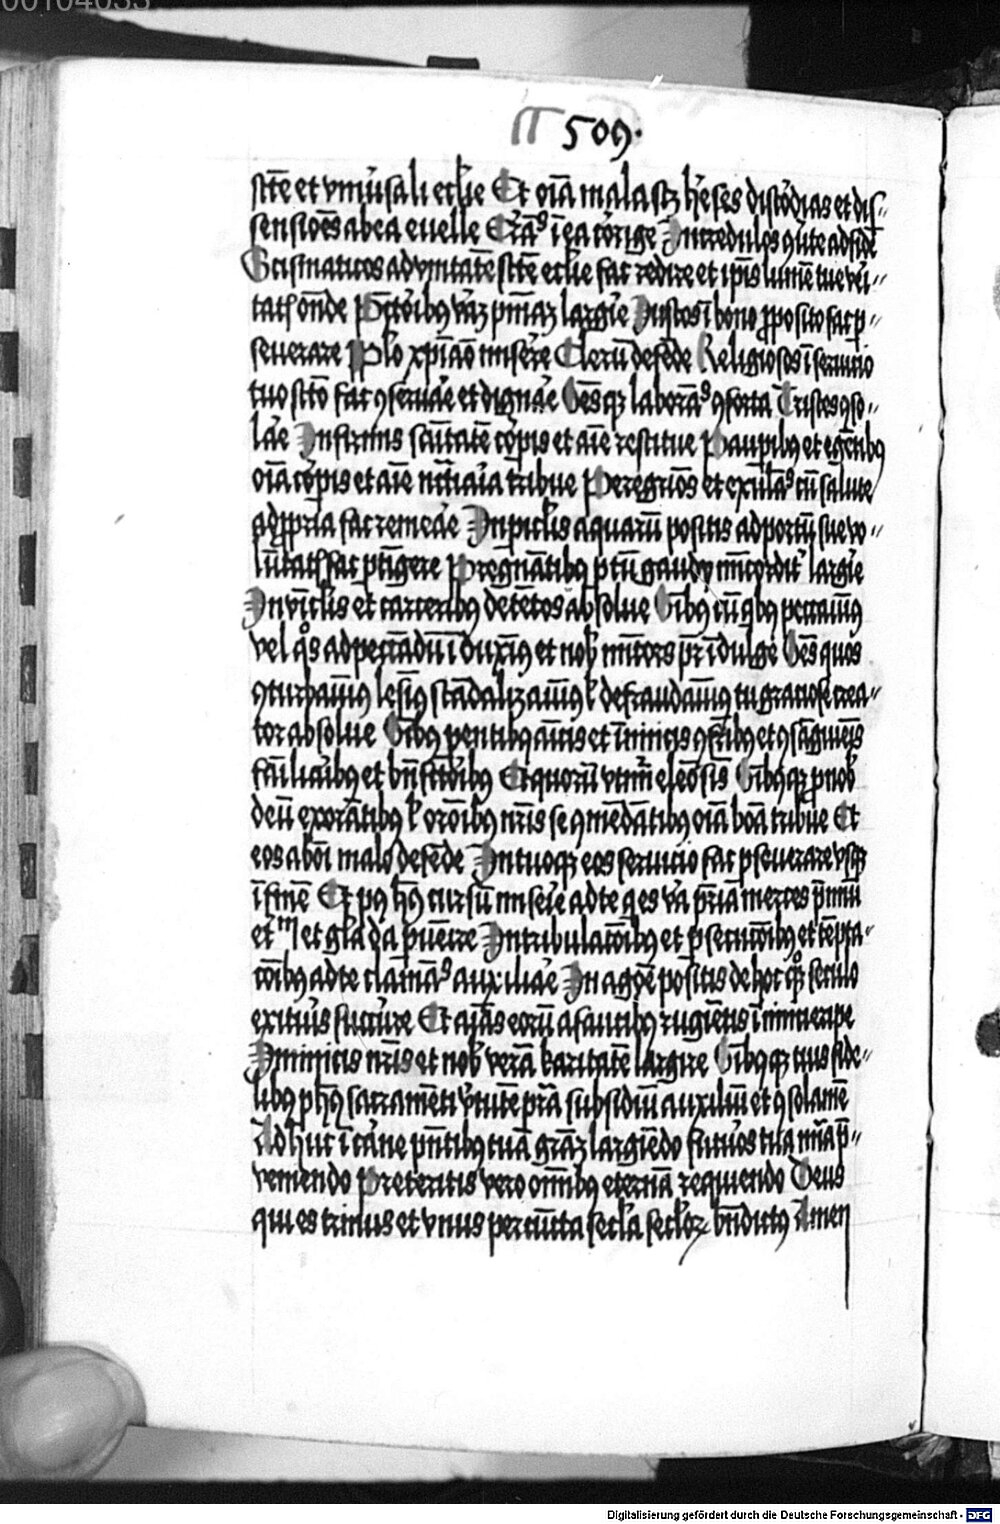 00104033
509.
sctē et vniūsali eccl'ie Et oīa mala scz h'eses discōdias et dis-
sensiōes ab ea euelle Errā⁹ ī ea corrige Incredulos 9ūte ad fidē
Scismaticos ad vnitatē sctē eccl'ie fac redire et ip̄is lumē tue vēi-
tatis ondē Pctōibꝯ vaꝫ pm̄aꝫ largire Iustos ī bono ꝓposito fac p-
seuerare Pplo xp̄iāo miserē Clerū defēde Religiosos ī seruicio
tuo sctō fac 9seruāe et dignāe Oēsqꝫ laborā⁹ 9forta Tristes 9so-
lāe Infirmis sanitatē corpis et aīe restitue Paupibꝯ et egētibꝯ
oīa corpis et aīe nccāia tribue Peregrīos et exulā⁹ cū salute
ad ꝓpria fac remeāe In piclis aquarū positis ad portū sue vo-
lūtatis fac ptīgere Pregnātibꝯ ptū gaudij mīcordit' largire
In vīclis et carceribꝯ detētos absolue Oībꝯ cū qbꝯ peccauimꝯ
vel qs ad peccādū īduximꝯ et nob mīcors pr īdulge Oēs quos
9turbauimꝯ lesimꝯ scādalizauimꝯ l' defraudauimꝯ tu graciose crea-
tor absolue Oībꝯ pentibꝯ amicis et inimicis 9frībꝯ et 9sāguineis
familiaibꝯ et bn̄fctōibꝯ Et quorū vtimur eleōsīs Oībꝯqꝫ p nob
deū exorātibꝯ l' orōībꝯ nr̄is se 9mēdātibꝯ oīa bōa tribue Et
eos ab oī malo defēde In tuoqꝫ eos seruicio fac pseuerare vsqꝫ
ī finē Et pꝯ hꝯ cursū miserie ad te
et gl'a da puēire In tribulacōībꝯ et psecucōībꝯ et tēpta-
cōībꝯ ad te clamā⁹ auxiliāe In agōe positis de hoc qꝫ seculo
exituīs succūre Et aīas eorū a faucibꝯ rugiētis īimici eripe
Inimicis nr̄is et nob verā karitatē largire Oībꝯqꝫ tuis fide-
libꝯ p hꝯ sacramēti v̄tutē pr̄a subsidiū auxiliū et 9solamē
Adhuc ī carne pn̄tibꝯ tuā grāꝫ largiēdo futuros tua mīa p̄-
veniendo Preteritis vero omnibꝯ eternā requiendo Deus
qui es trinus et vnus per cuncta secl'a seclorꝫ bn̄dictꝯ Amen
Digitalisierung gefördert durch die Deutsche Forschungsgemeinschaft - DFG